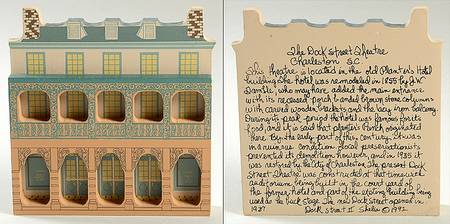 The Dock Street Theatre
Charleston S.C.
This theatre is located in the old Planter's Hotel
building. The hotel was remodeled in 1855 by J.W
Gamble, who may have added the main entrance
with its recessed porch and brown stone columns
with carved wooden brackets and the lacy iron balcony.
During its peak period the hotel was famous for its
food, and it is said that planter's Punch originated
here. By the early part of this century, it was in
ruinous condition. Local preservationists
prevented its demolition however, and in 1935 it
was restored by the city of Charleston. The present Dock
Street Theatre was constructed at that time with
auditorium being built in the court yard of
the former hotel and part of the building being
used for the back stage. The new Dock Street opened in
1937
Dock Street II Sheila © 1992